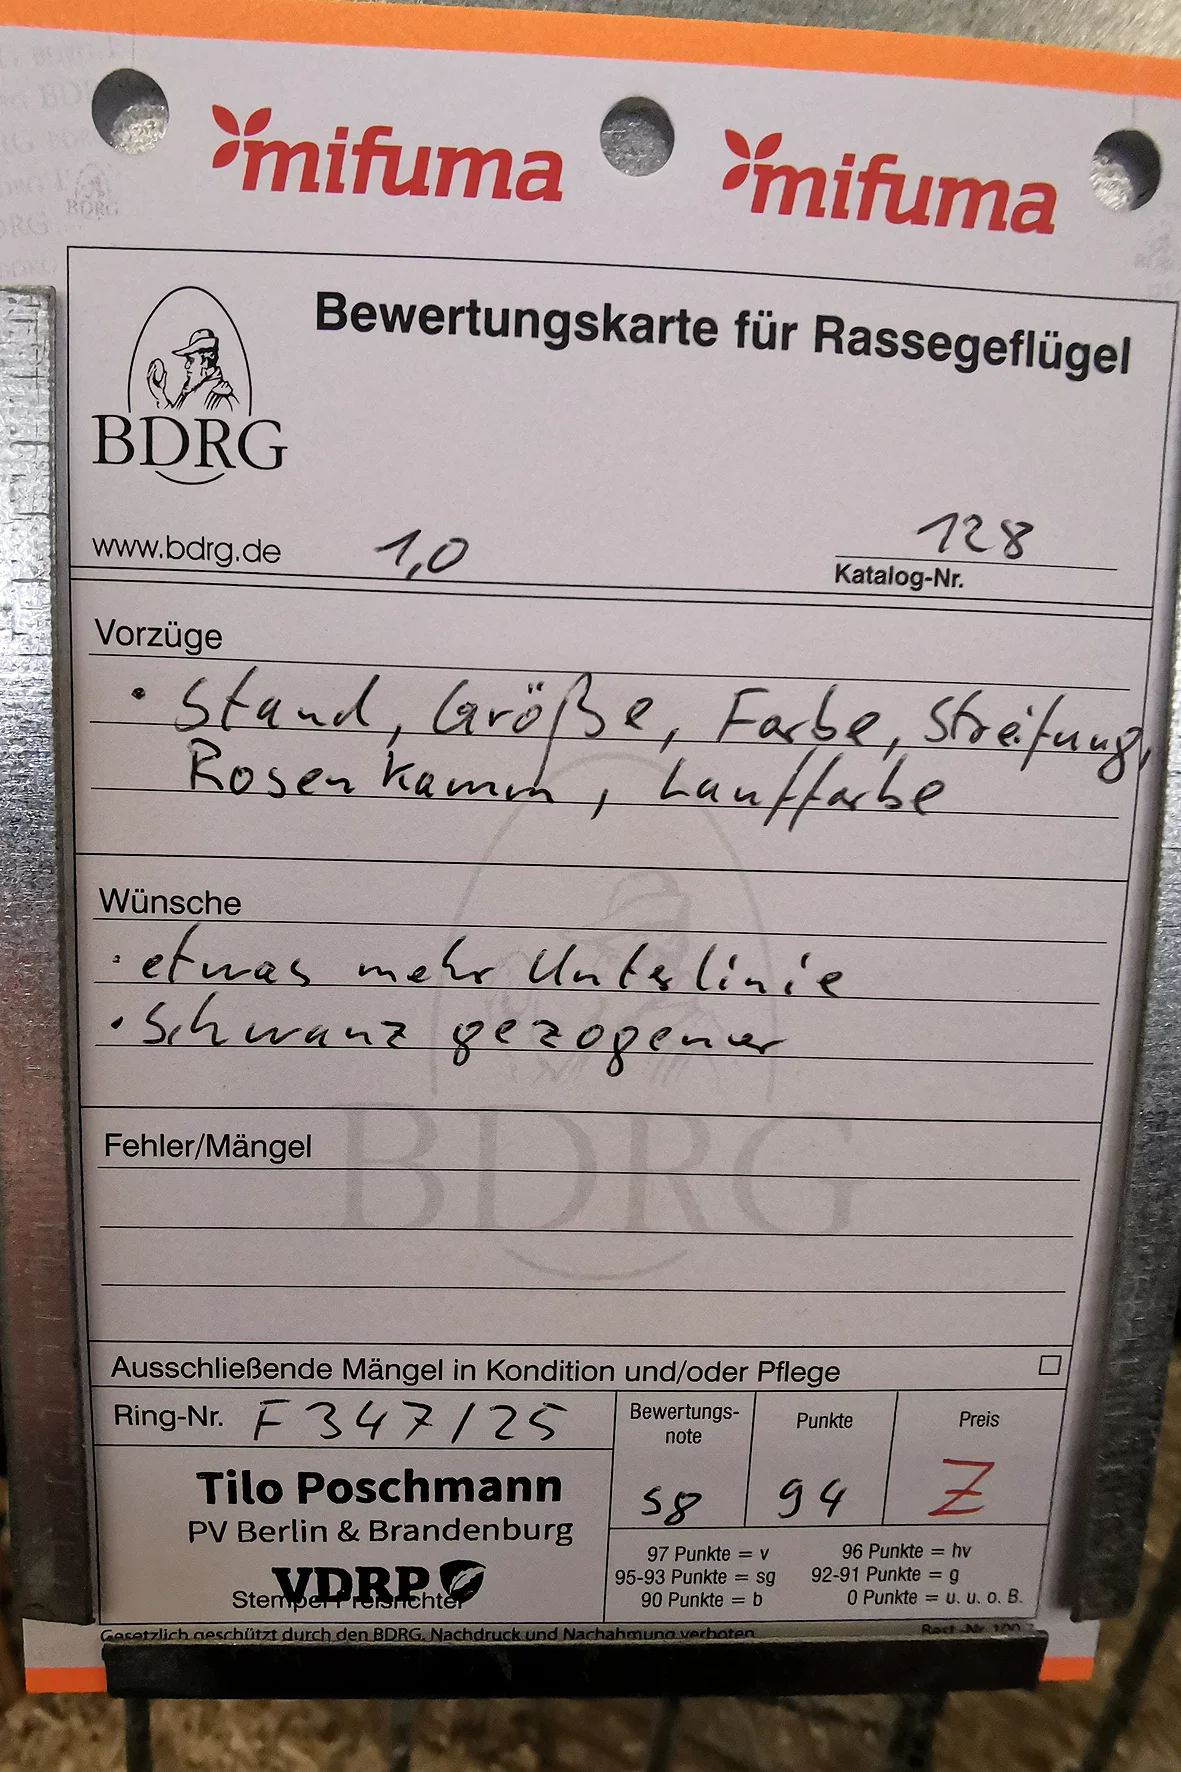 mifuma mifuma
Bewertungskarte für Rassegeflügel
BDRG
www.bdrg.de 1,0 128
Katalog-Nr.
Vorzüge
• Stand, Größe, Farbe, Streifung,
Rosenkamm, Lauffarbe
Wünsche
• etwas mehr Unterlinie
• Schwanz gezogener
BDRG
Fehler/Mängel
Ausschließende Mängel in Kondition und/oder Pflege
Ring-Nr. F 347/25
Bewertungs-
note
Punkte
Preis
sg 94 Z
Tilo Poschmann
PV Berlin & Brandenburg
VDRP
Stempel Preisrichter
97 Punkte = v 96 Punkte = hv
95-93 Punkte = sg 92-91 Punkte = g
90 Punkte = b 0 Punkte = u. u. o. B.
Gesetzlich geschützt durch den BDRG. Nachdruck und Nachahmung verboten